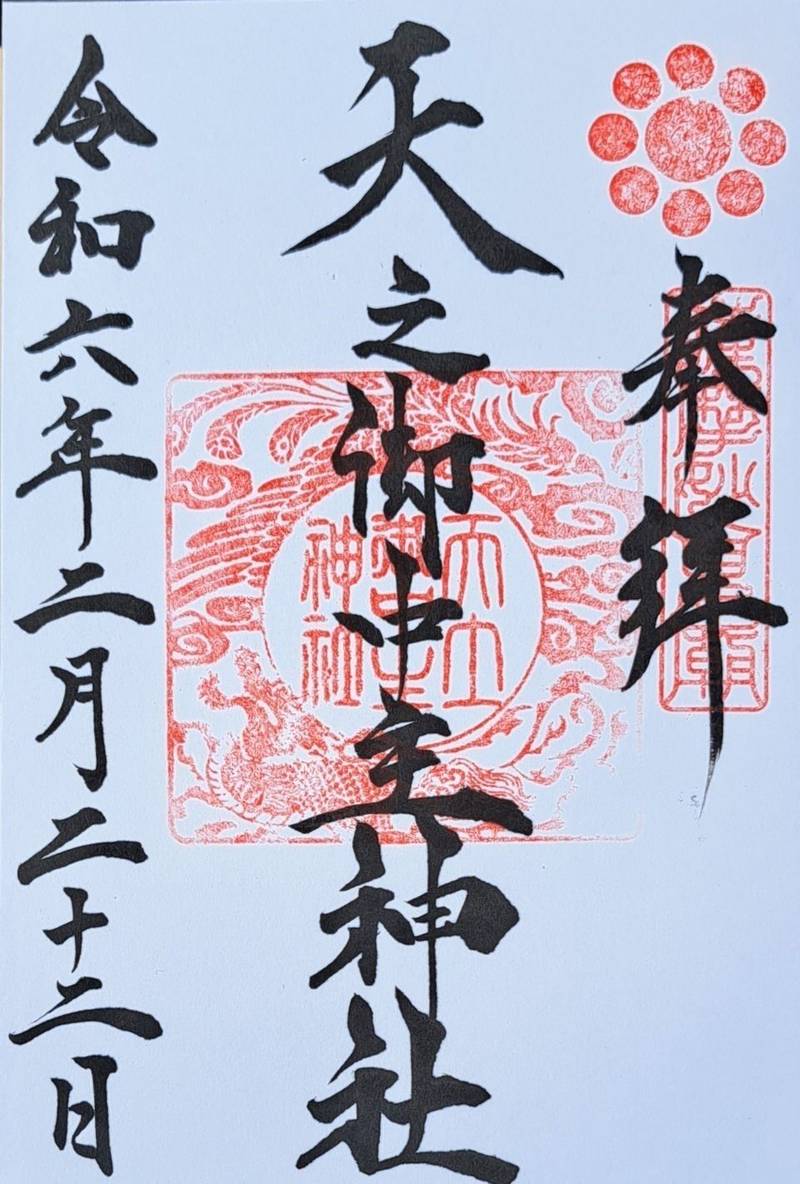 奉拝
天之御中主神社
令和六年二月二十二日
天之
御中主
神社